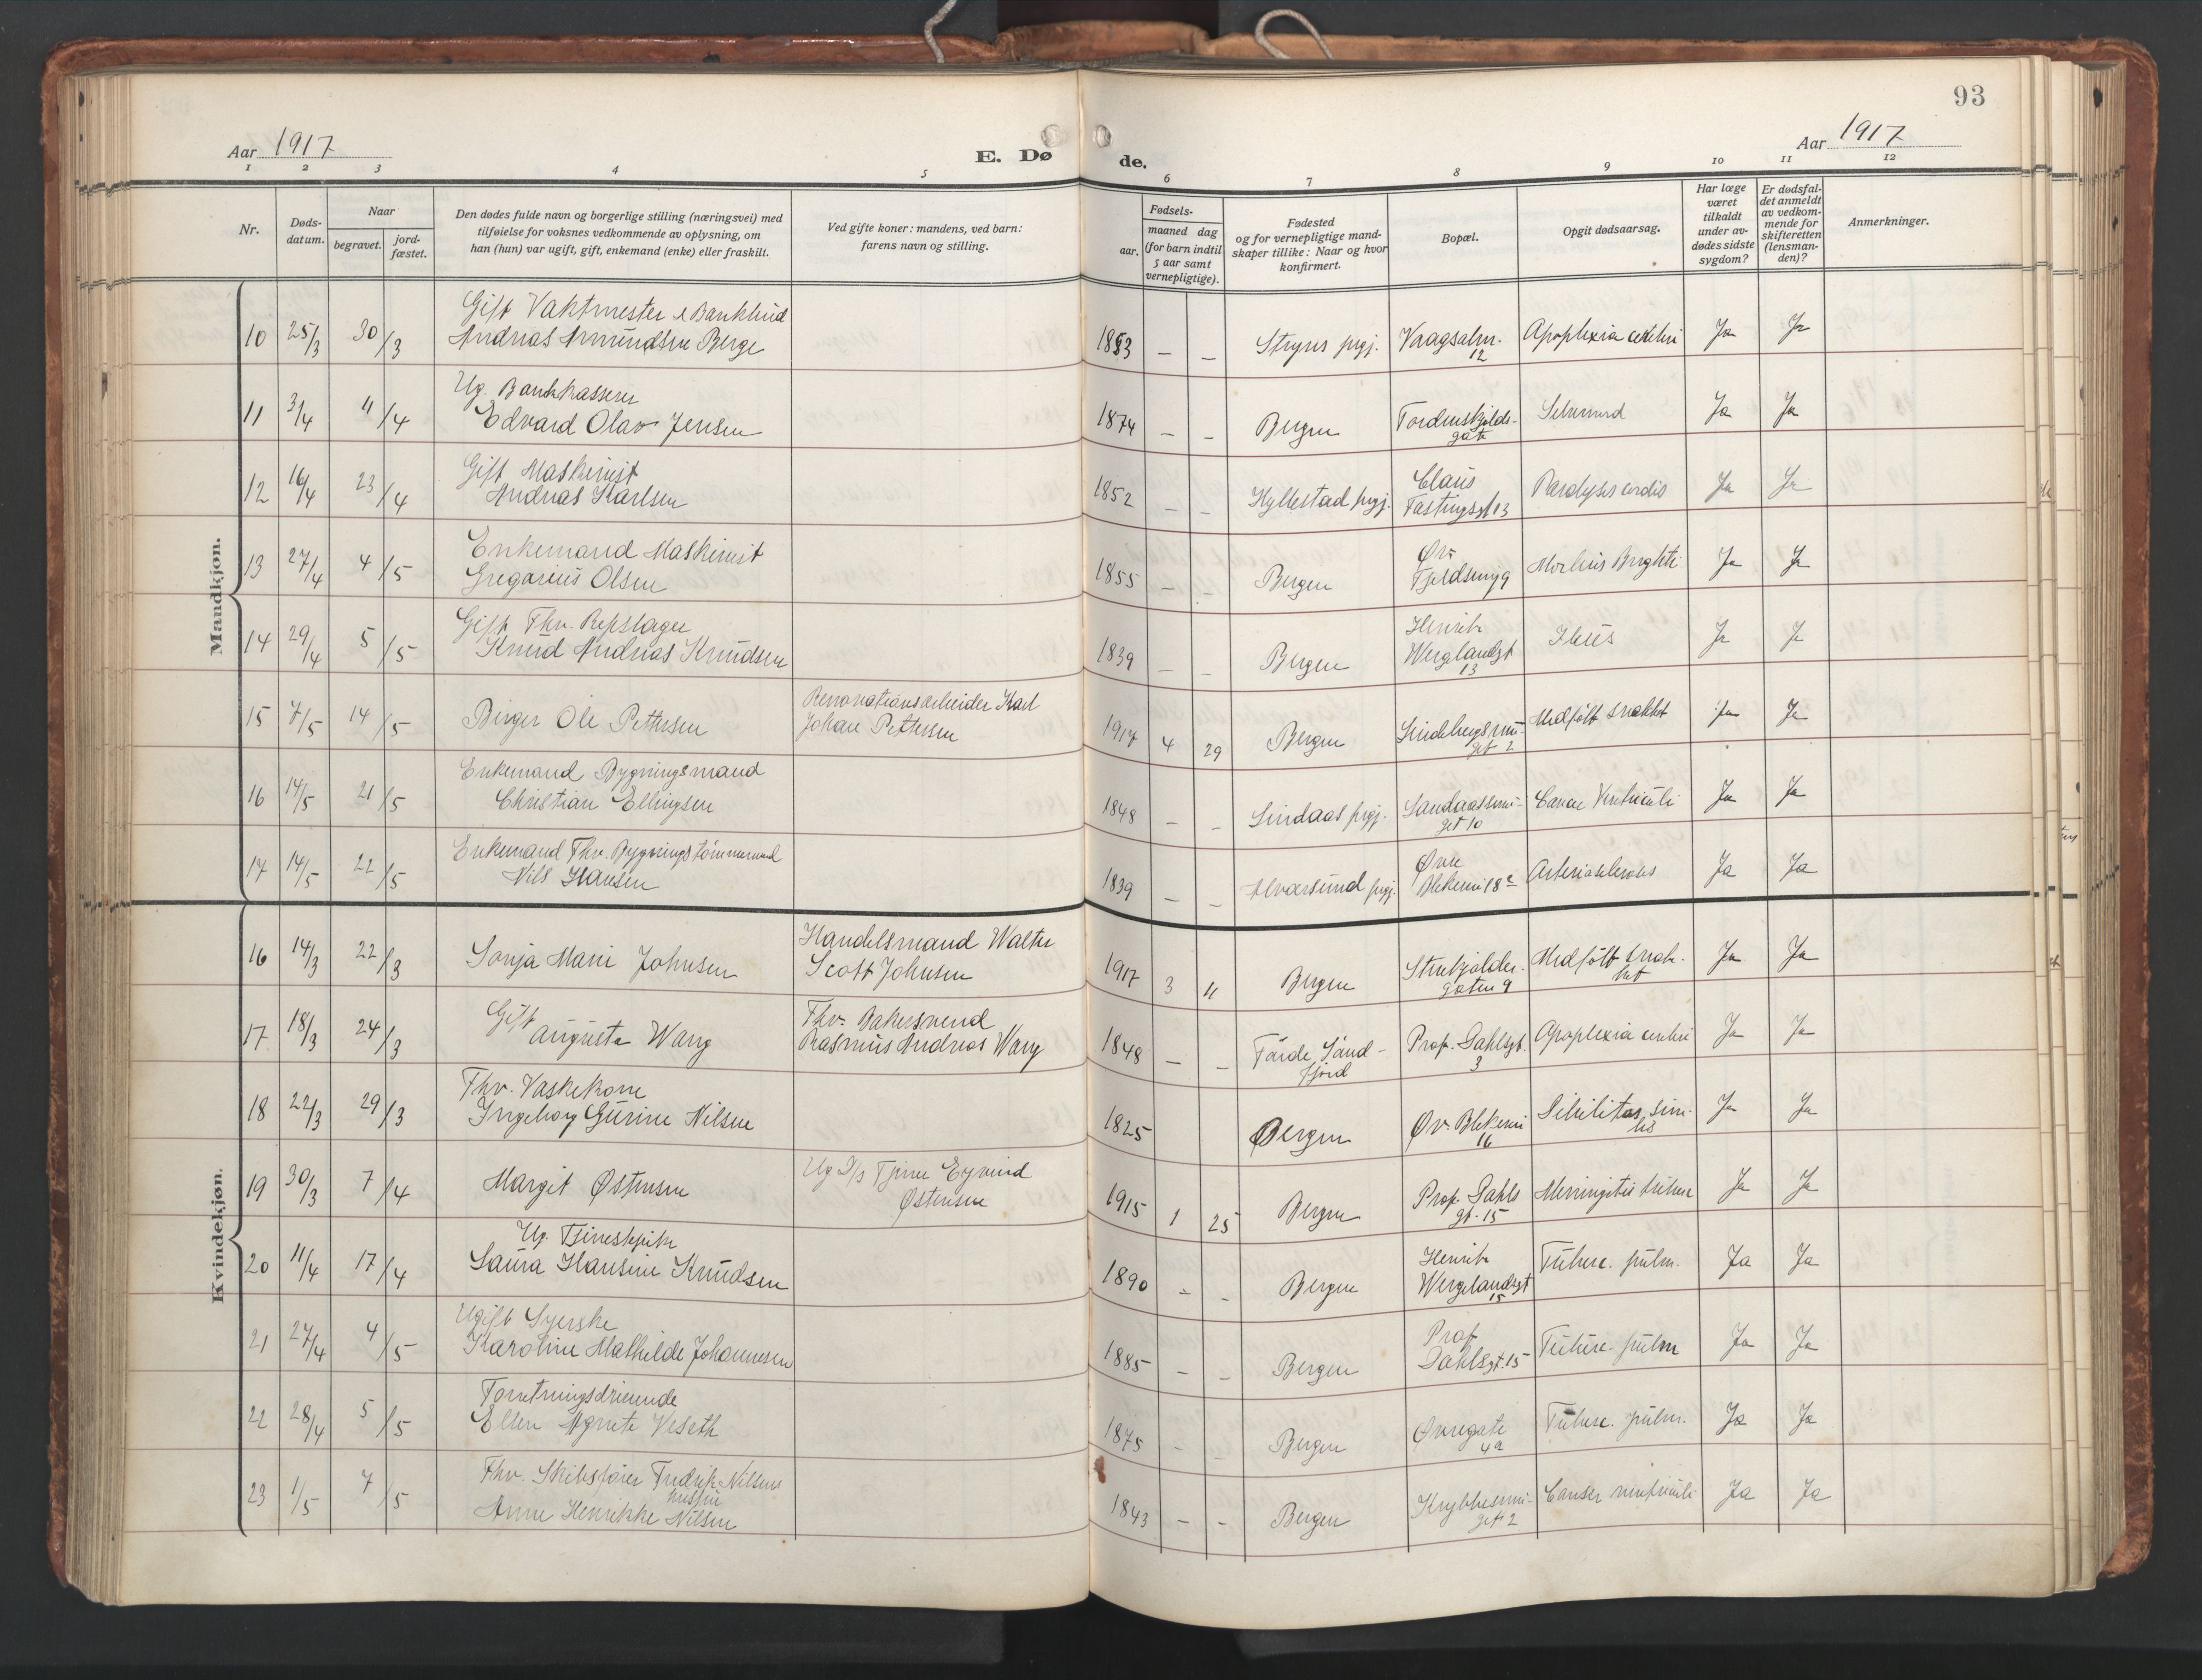 93
Aar 1917
E. Dø
de.
Aar 1917
1 2 3 4 5 6 7 8 9 10 11 12
Nr.
Dødsdatum.
Naar
begravet.
jordfæstet.
Den dødes fulde navn og borgerlige stilling (næringsvei) med
tilføielse for voksnes vedkommende av oplysning, om
han (hun) var ugift, gift, enkemand (enke) eller fraskilt.
Ved gifte koner: mandens, ved barn:
farens navn og stilling.
Fødsels-
aar.
maaned dag
(for barn indtil
5 aar samt
vernepligtige).
Fødested
og for vernepligtige mand-
skaper tillike: Naar og hvor
konfirmert.
Bopæl.
Opgit dødsaarsag.
Har læge
været
tilkaldt
under av-
dødes sidste
sygdom?
Er dødsfal-
det anmeldt
av vedkom-
mende for
skifteretten
(lensman-
den)?
Anmerkninger.
Mandkjøn.
Gift Vaktmester
10 25/3 30/3 Andreas Amundsen Berge 1853 – – Stryns prgj. Vaagsalm. 12 Apoplexia cerebri Ja Ja
Ug. Bankkasserer
11 3/4 11/4 Edvard Olav Jensen 1874 – – Bergen Tordenskjolds-gate Selvmord Ja Ja
Gift Maskinist
12 16/4 23/4 Andreas Karlsen 1852 – – Hyllestad prgj. Claus Fastingsgt 13 Paralysis cordis Ja Ja
Enkemand Maskinist
13 27/4 4/5 Gregarius Olsen 1855 – – Bergen Øv. Fjeldsmug 9 Morbus Brighti Ja Ja
Gift Fhv. Repslager
14 29/4 5/5 Knud Andreas Knudsen 1839 – – Bergen Henrik Wergelandsgt 13 Ileus Ja Ja
15 7/5 14/5 Birger Ole Pettersen Renovationsarbeider Karl Johan Pettersen 1917 4 29 Bergen Lindebergsmu-get 2 Medfött svakhet Ja Ja
Enkemand Bygningsmand
16 14/5 21/5 Christian Ellingsen 1848 – – Lindaas prgj. Sandaassmu-get 10 Cancer Ventriculi Ja Ja
Enkemand Fhv. Bygningstömmermand
17 14/5 22/5 Nils Hansen 1839 – – Alversund prgj. Øvre Blekevei 18 Arteriosclerosis Ja Ja
Kvindekjøn.
16 14/3 22/3 Sonja Marie Johnsen Handelsmand Walter Scott Johnsen 1917 3 11 Bergen Strubjalder-gaten 9 Medfött svak-het Ja Ja
Gift
17 18/3 24/3 Augusta Wang Fhv. Bakersvend Rasmus Andreas Wang 1848 – – Förde Sönd-fjord Prof. Dahlsgt. 3 Apoplexia cerebri Ja Ja
Fhv. Vaskekone
18 22/3 29/3 Ingeborg Gurine Nilsen 1825 Bergen Øv. Blekevei 16 Debilitas seni-lis Ja Ja
19 30/3 7/4 Margit Østensen Ug D/s Tjener Eyvind Østensen 1915 1 25 Bergen Prof. Dahls gt. 15 Meningitis tuberc Ja Ja
Ug. Tjenestepike
20 11/4 17/4 Laura Hansine Knudsen 1890 – – Bergen Henrik Wergelandsgt 15 Tuberc. pulm. Ja Ja
Ugift Syerske
21 27/4 4/5 Karoline Mathilde Johannesen 1885 – – Bergen Prof Dahlsgt. 15 Tuberc. pulm Ja Ja
Forretningsdrivende
22 28/4 5/5 Ellen Agnete Veseth 1875 – – Bergen Øvregate 4a Tuberc. pulm. Ja Ja
Fhv. Skibsförer Fredrik Nilsens hustru
23 1/5 7/5 Anne Henrikke Nilsen 1843 – – Bergen Krybbesmu-get 2 Cancer ventriculi Ja Ja